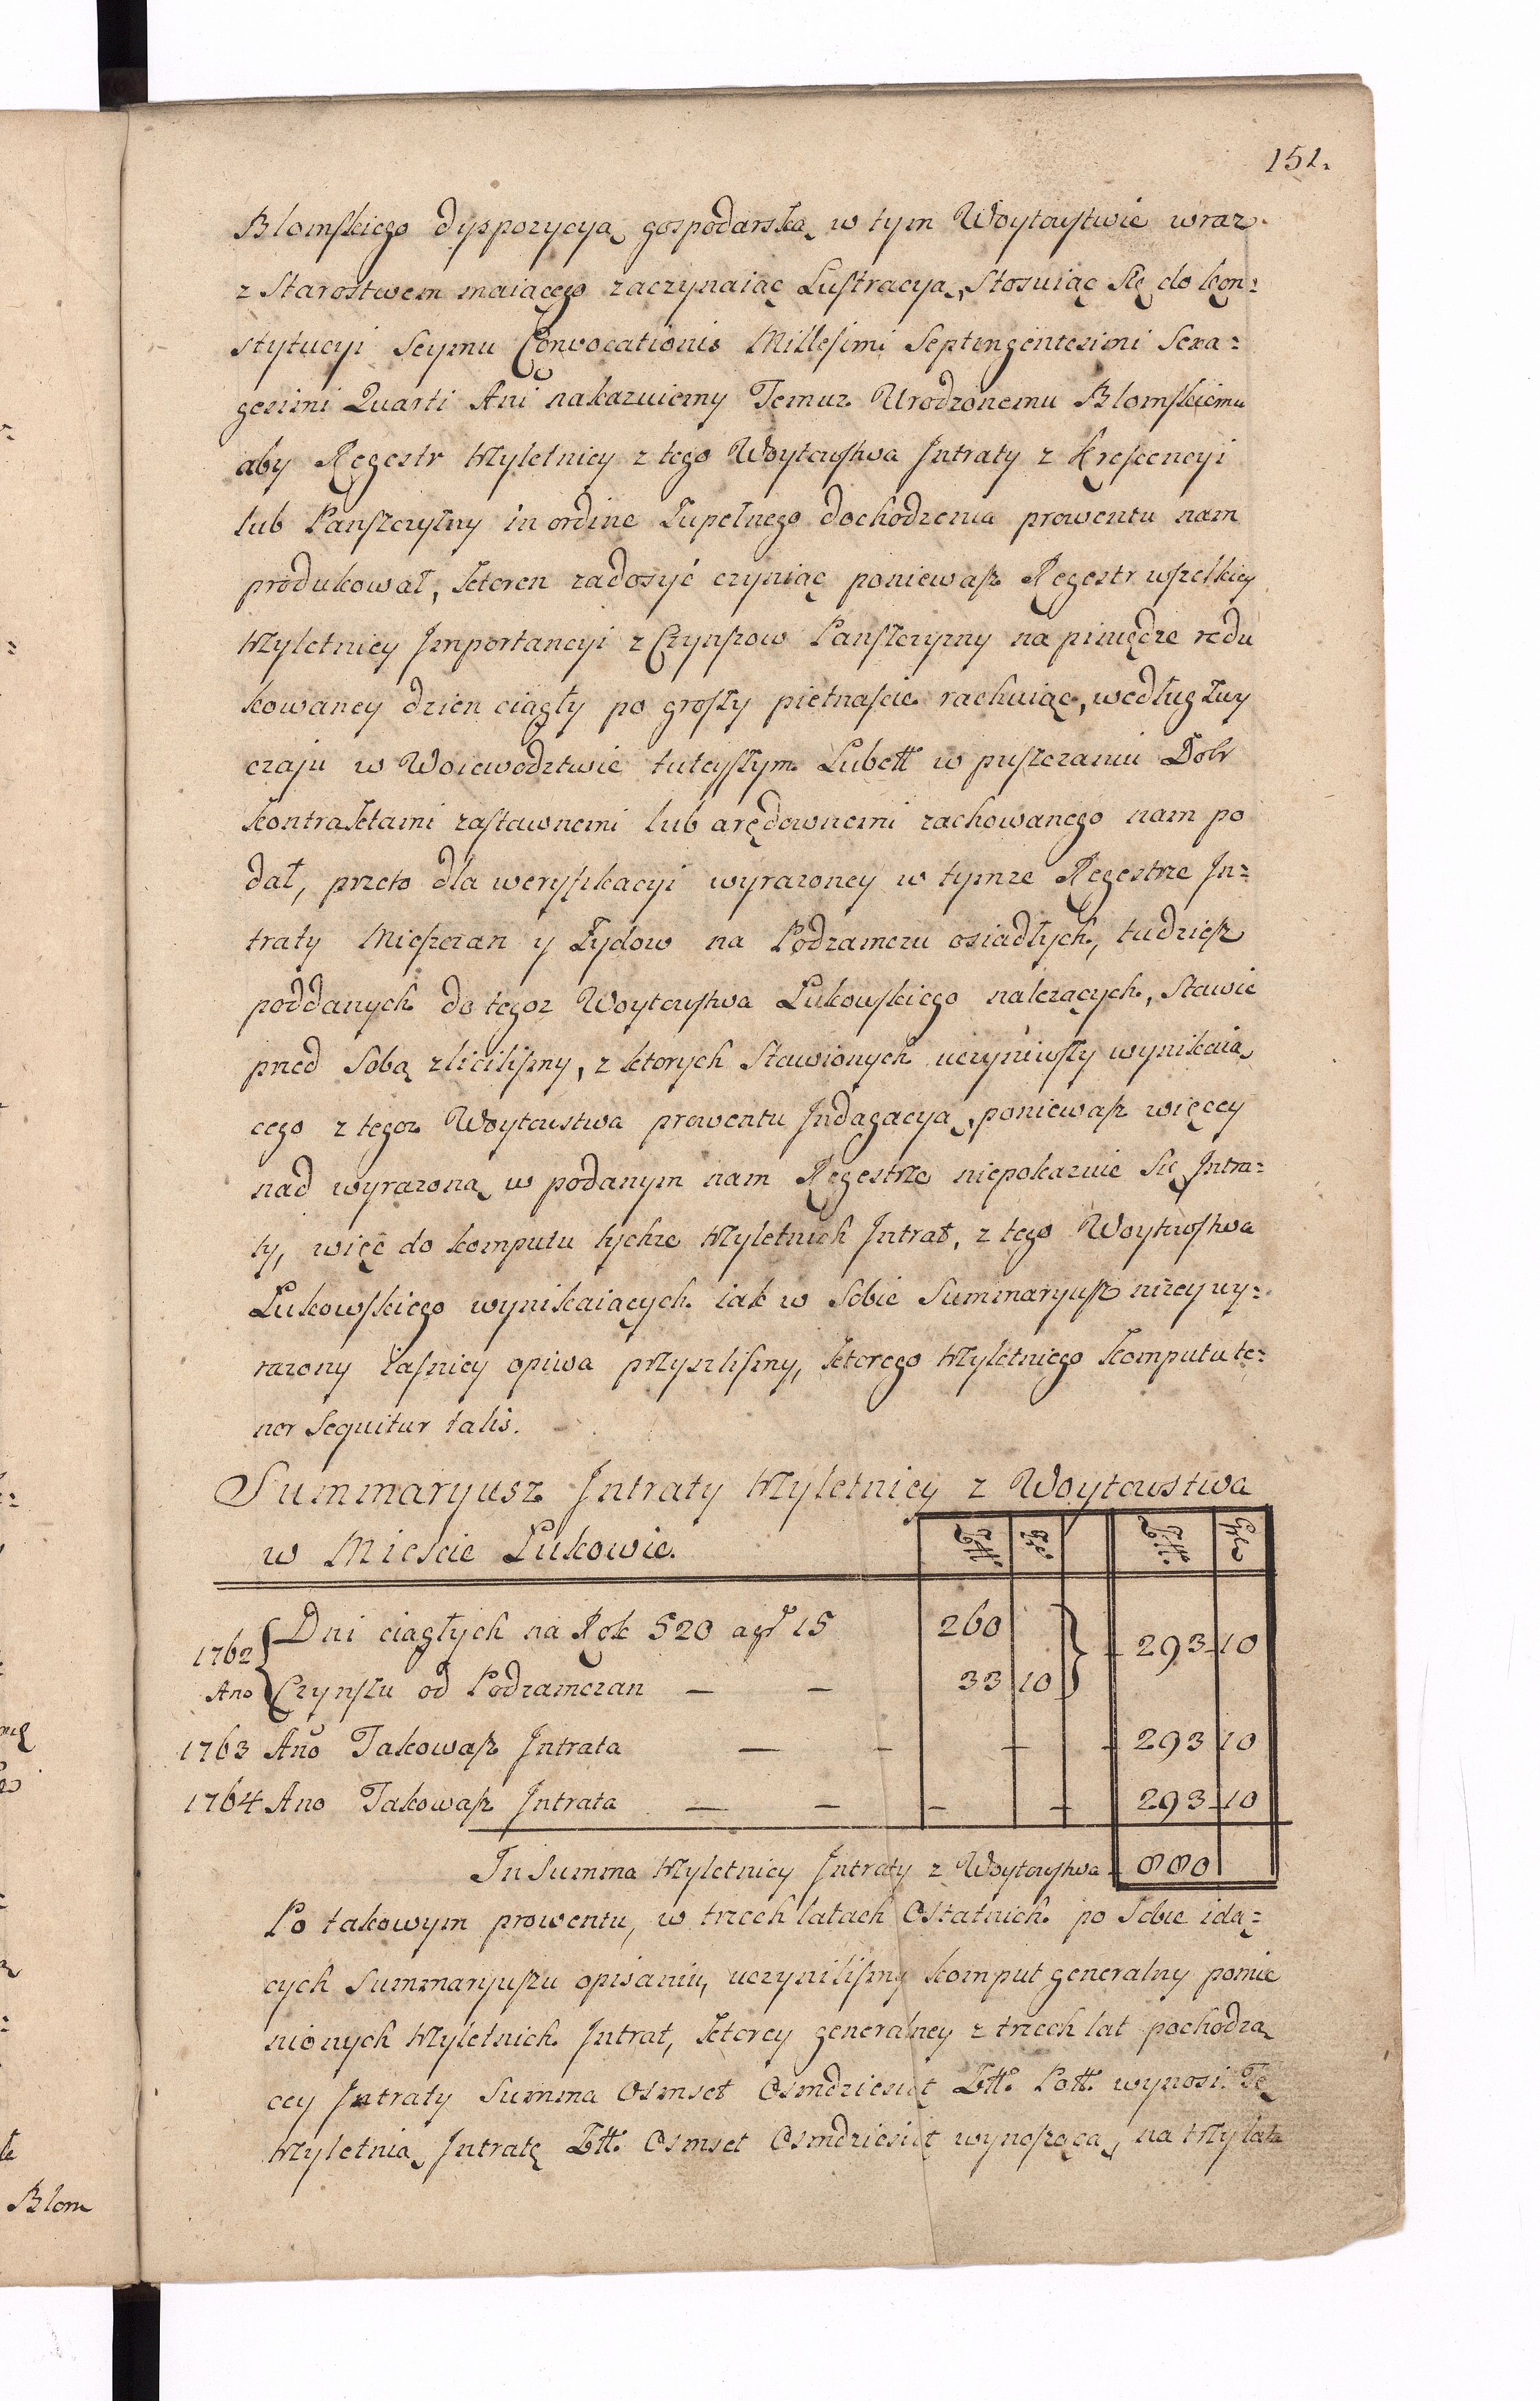 151.
Blomskiego dyspozycyą gospodarską w tym Woytowstwie wraz
z Starostwem maiącego zaczynaiąc Lustracyą, Stosuiąc się do kon=
stytucyi Seymu Convocationis Millesimi Septingentesimi Sexa=
gesimi Quarti Ani nakazuiemy Temuz Urodzonemu Blomskiemu
aby Regestr trzyletniey z tego Woytowstwa Jntraty z Krescencyi
lub Panszczyzny in ordine Zupełnego dochodzenia prowentu nam
produkował, ktoren zadosyć czyniąc poniewasz Regestr wszelkiey
trzyletniey Jmportancyi z Czynszow Panszczyzny na piniędze redu
kowaney dzien ciągły po groszy pietnascie rachuiąc, według Zwy
czaju w Woiewodztwie tuteyszym Lubett w puszczaniu Dobr
kontraktami zastawnemi lub arędownemi zachowanego nam po
dał, przeto dla weryfikacyi wyrazoney w tymze Regestrze Jn=
traty Mieszczan y Zydow na Podzamczu osiadłych, tudziesz
poddanych do tegoz Woytowstwa Łukowskiego nalezących, Stawic
przed Sobą zlicilismy, z ktorych Stawionych uczyniwszy wynikaią
cego z tegoz Woytowstwa prowentu Jndagacyą, poniewasz więcey
nad wyrazoną w podanym nam Regestrze niepokazuie się Jntra=
ty, więc do komputu tychze trzyletnich Jntrat, z tego Woytowstwa
Łukowskiego wynikaiących iak w Sobie Summaryusz nizey wy=
razony iasniey opiwa przyszlismy, ktorego trzyletniego komputu te=
nor Sequitur talis.
Summaryusz Jntraty trzyletniey z Woytowstwa
w Miescie Łukowie. Złłt. Gr. Złłt. Gr.
1762 Dni ciągłych na Rok 520 a gr 15 260 293 10
Ano Czynszu od Podzamczan — — 33 10
1763 Ano Takowasz Jntrata — — — — 293 10
1764 Ano Takowasz Jntrata — — — — 293 10
In Summa trzyletniey Jntraty z Woytowstwa 880
Po takowym prowentu, w trzech latach Ostatnich po Sobie idą=
cych Summaryuszu opisaniu, uczynilismy komput generalny pomie
nionych trzyletnich Jntrat, ktorey generalney z trzech lat pochodzą
cey Jntraty Summa Osmset Osmdziesiąt Złł. Poll. wynosi. Tę
trzyletnią Jntratę Złł. Osmset Osmdziesiąt wynoszącą, na trzy lata
Blom